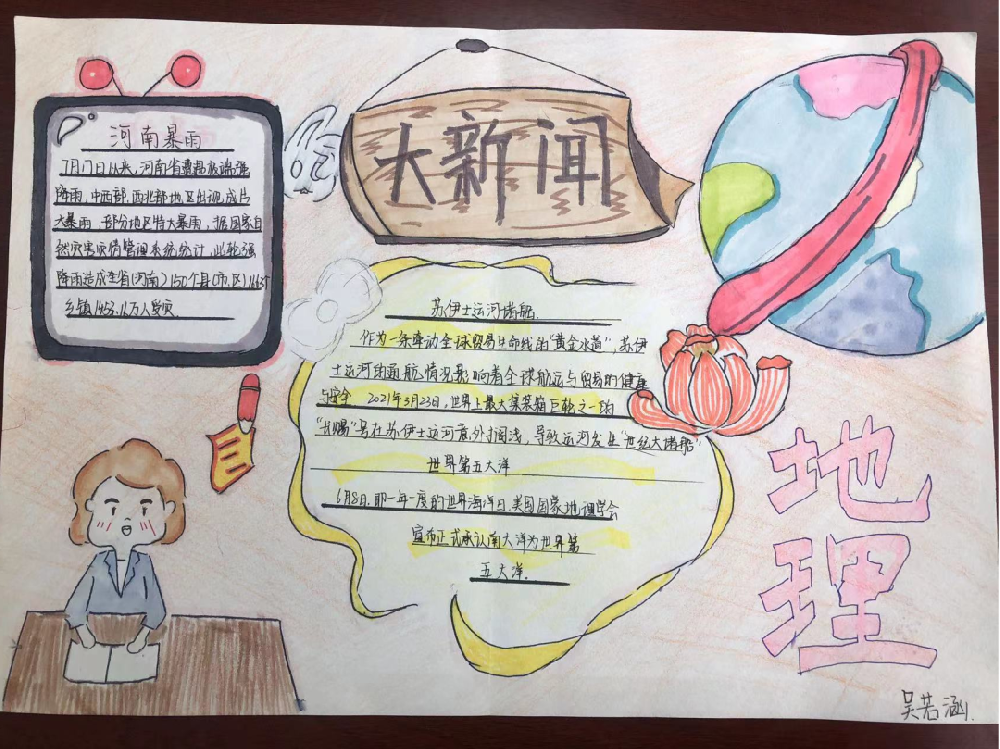 大新闻
河南暴雨
7月17日以来,河南省遭遇极端强
降雨,中西部,西北部地区出现成片
大暴雨,部分地区特大暴雨,据国家自
然灾害灾情管理系统统计,此轮强
降雨造成全省(河南)150个县(市、区)1663个
乡镇1453.16万人受灾
苏伊士运河堵船.
作为一条牵动全球贸易生命线的“黄金水道”,苏伊
士运河的通航情况影响着全球航运与贸易的健康
与安全 2021年3月23日,世界上最大集装箱巨轮之一的
“长赐”号在苏伊士运河意外搁浅,导致运河发生“世纪大堵船”
世界第五大洋
6月8日,即一年一度的世界海洋日,美国国家地理学会
宣布正式承认南大洋为世界第
五大洋.
地理
吴若涵.